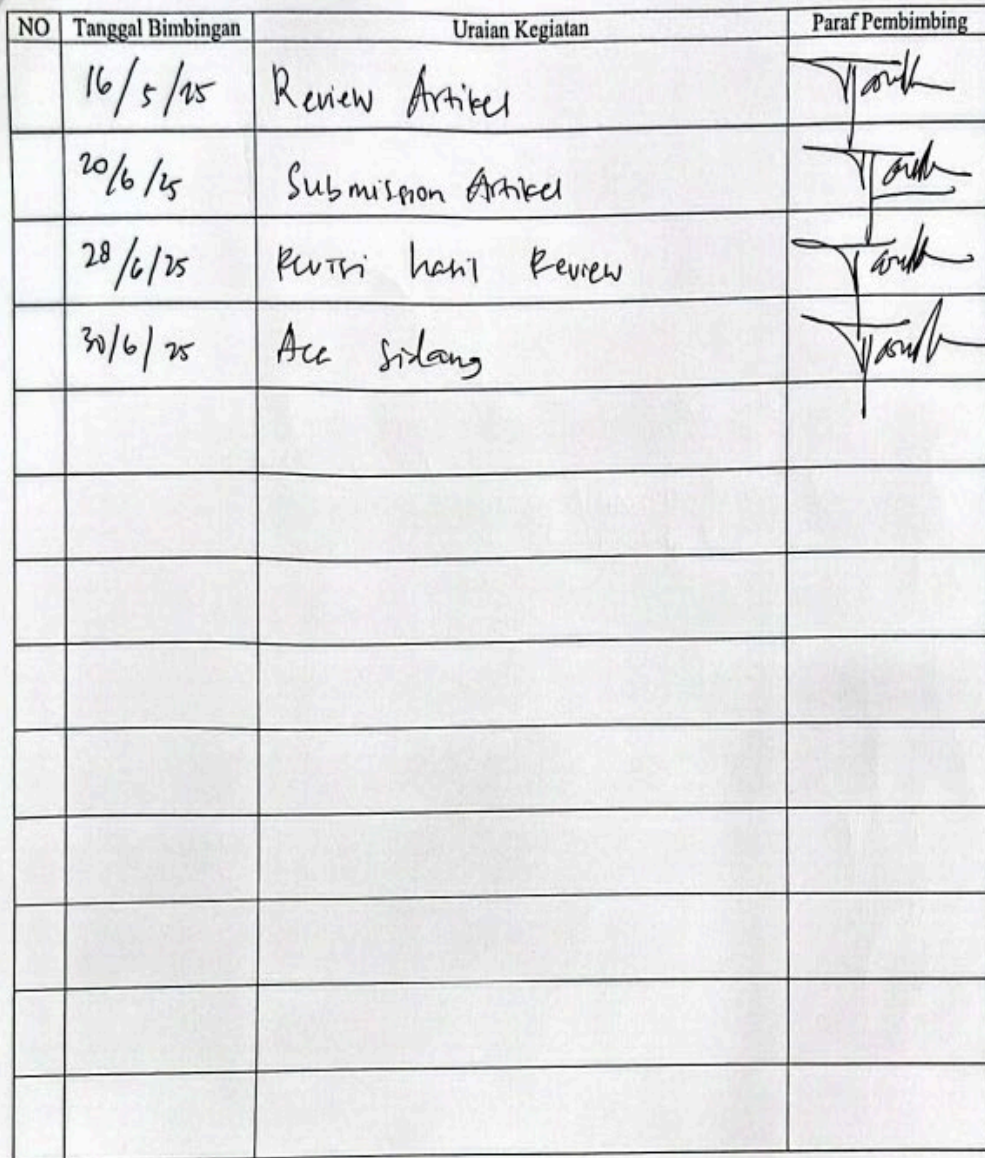 NO Tanggal Bimbingan Uraian Kegiatan Paraf Pembimbing
16/5/25 Review Artikel
20/6/25 Submission Artikel
28/6/25 Revisi hasil Review
30/6/25 Acc Sidang